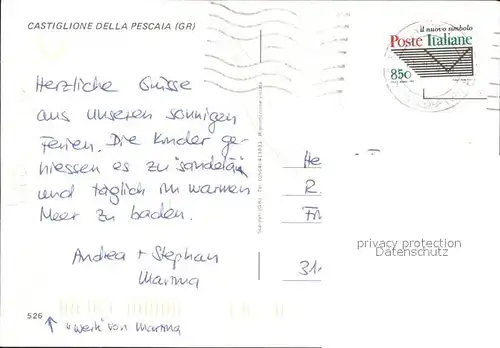 CASTIGLIONE DELLA PESCAIA (GR)
il nuovo simbolo
Poste Italiane
850
Herzliche Grüsse
aus unseren sonnigen
Ferien. Die Kinder ge-
niessen es zu "sändelä"
und täglich im warmen
Meer zu baden.
Andrea + Stephan
Marina
He
R.
Fr
31
privacy protection
Datenschutz
526
"Werk" von Marina